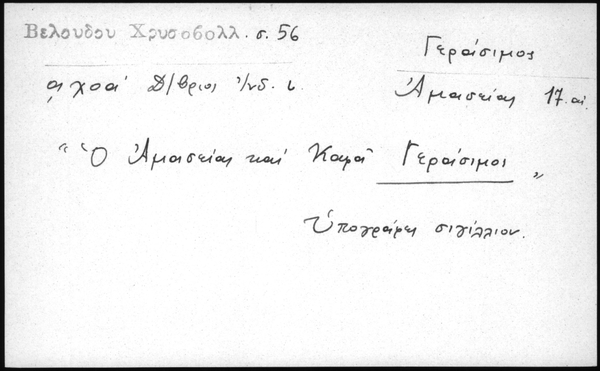 Βελούδου Χρυσοβολλ. σ. 56
Γεράσιμος
͵αχοα' Δ/βριος Ἰ/νδ. ι.
Ἀμασείας 17. αἰ.
"Ὁ Ἀμασείας καὶ Καρᾶ Γεράσιμος"
Ὑπογράφει σιγίλλιον.